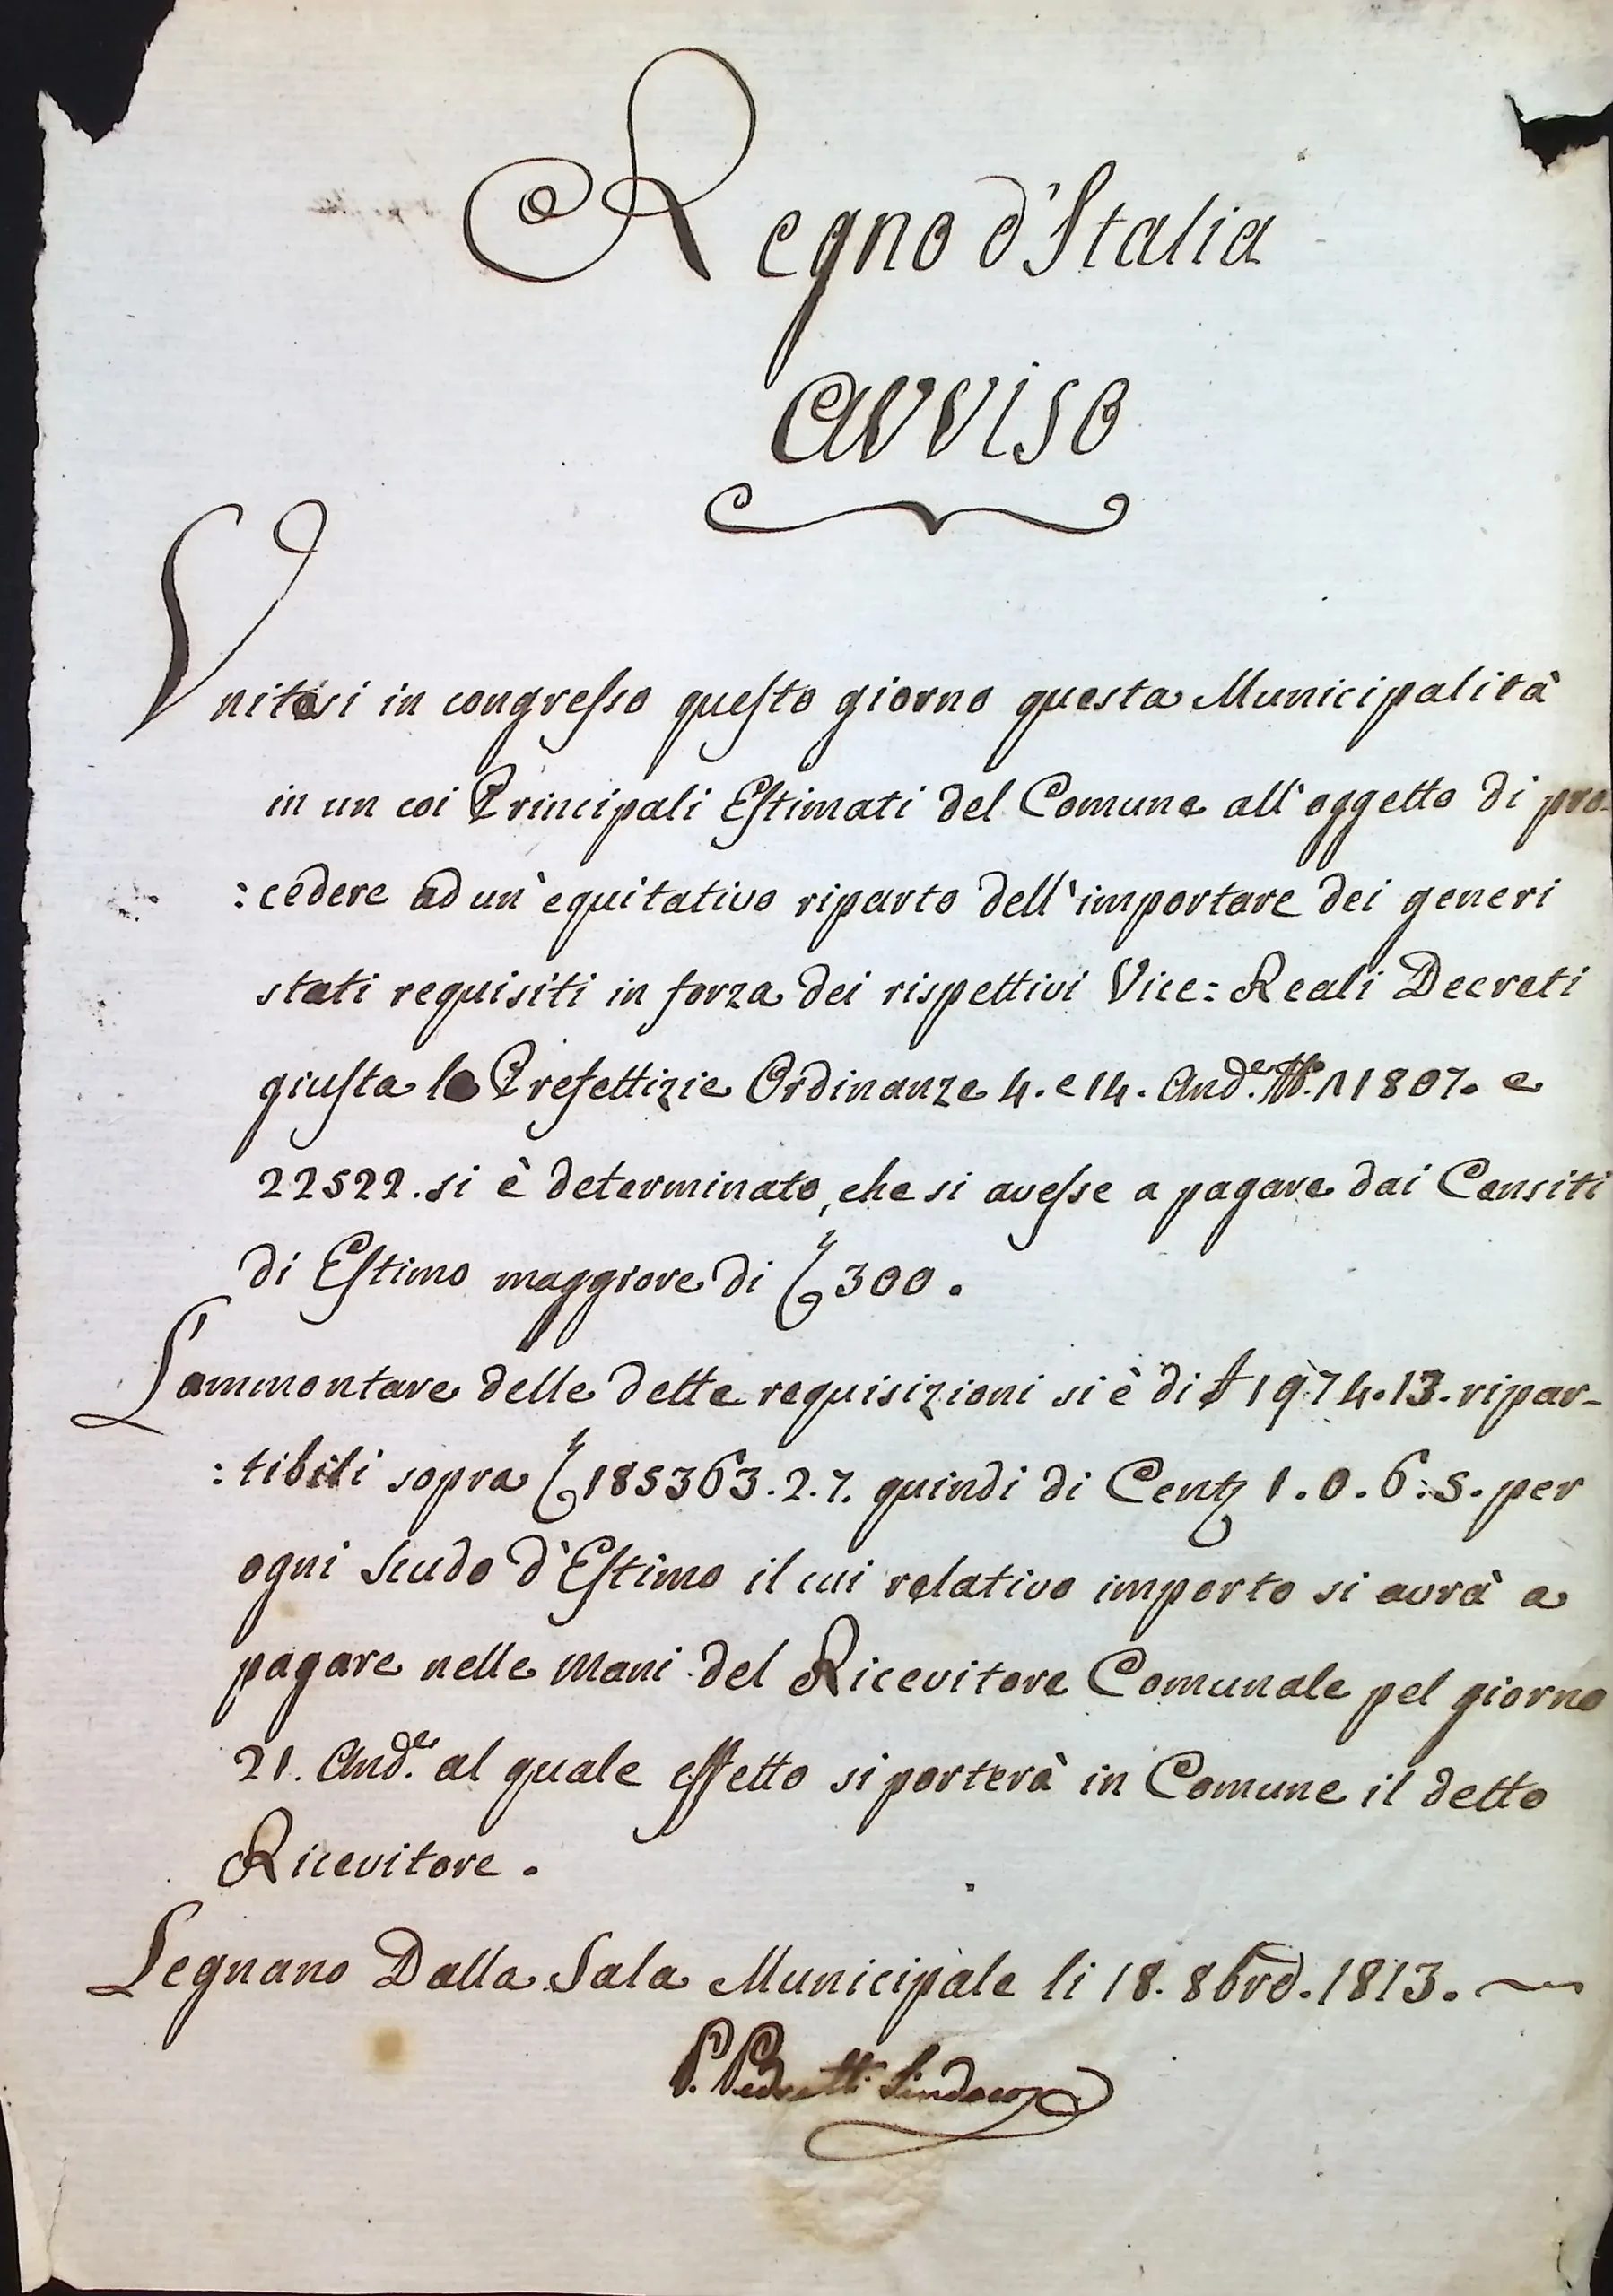 Regno d'Italia
Avviso
Unitasi in congresso questo giorno questa Municipalità
in un coi Principali Estimati del Comune all'oggetto di pro-
:cedere ad un'equitativo riparto dell'importare dei generi
stati requisiti in forza dei rispettivi Vice: Reali Decreti
giusta le Prefettizie Ordinanze 4. e 14. And.e N. 11807. e
22522. si è determinato, che si avesse a pagare dai Censiti
di Estimo maggiore di 300.
L'ammontare delle dette requisizioni si è di £ 1974.13. ripar-
:tibili sopra 185363.2.7. quindi di Cent. 1.0.6:5. per
ogni Scudo d'Estimo il cui relativo importo si avrà a
pagare nelle mani del Ricevitore Comunale pel giorno
21. And.e al quale effetto si porterà in Comune il detto
Ricevitore.
Legnano Dalla Sala Municipale li 18. 8bre. 1813.
P. Pedretti Sindaco